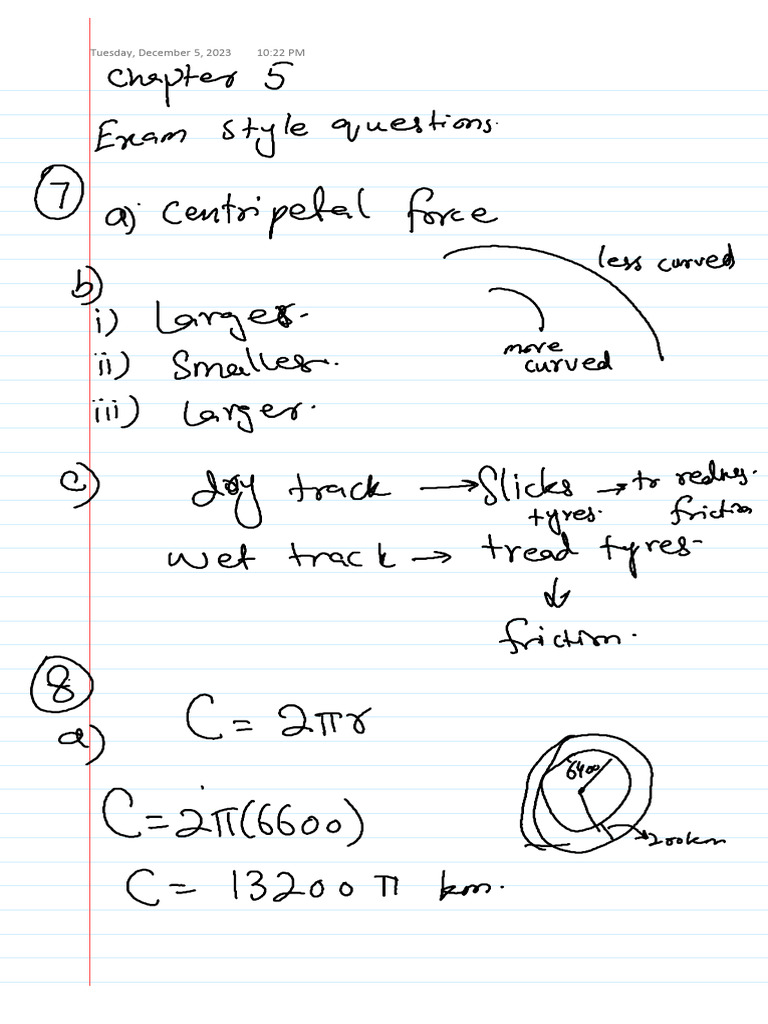 Tuesday, December 5, 2023 10:22 PM
Chapter 5
Exam style questions.
7
a) Centripetal force
less curved
b)
i) Larger.
more curved
ii) Smaller.
iii) Larger.
c) dry track → Slicks tyres. → to friction
wet track → tread tyres
↓
friction.
8
a) C = 2πr
6400
C = 2π(6600)
200km
C = 13200 π km.